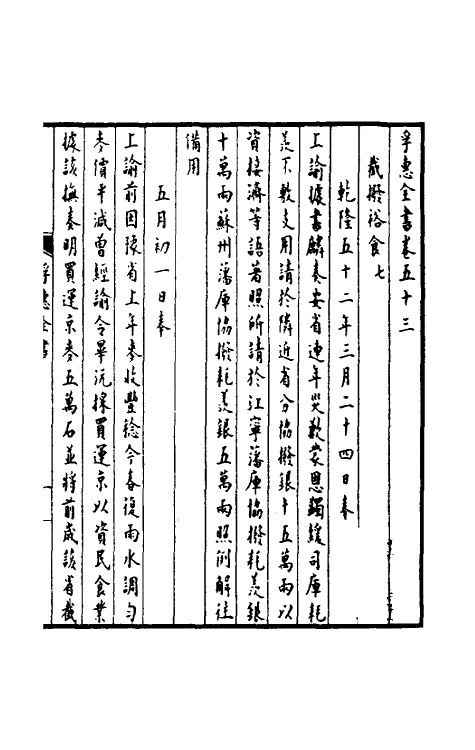 孚惠全書卷五十三
截撥裕食七
乾隆五十二年三月二十四日奉
上諭據書麟奏安省連年災歉蒙恩蠲緩司庫耗
羨不敷支用請於隣近省分協撥銀十五萬兩以
資接濟等語著照所請於江寧藩庫協撥耗羨銀
十萬兩蘇州藩庫協撥耗羨銀五萬兩照例解往
備用
五月初一日奉
上諭前因豫省上年麥收豐稔今春復雨水調勻
麥價平減曾經諭令畢沅採買運京以資民食業
據該撫奏明買運京麥五萬石並將前歲該省截
孚惠全書